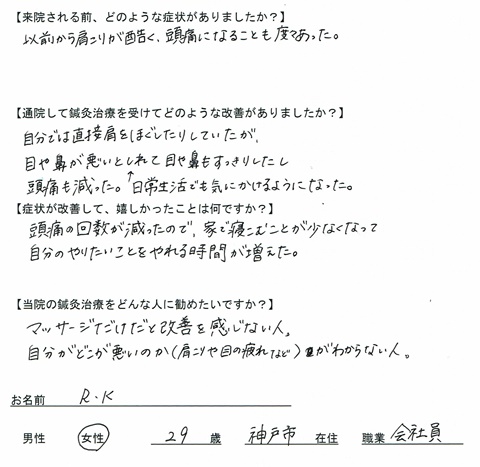 【来院される前、どのような症状がありましたか？】
以前から肩こりが酷く、頭痛になることも度々あった。
【通院して鍼灸治療を受けてどのような改善がありましたか？】
自分では直接肩をほぐしたりしていたが、
目や鼻が悪いとしれて目や鼻もすっきりしたし
頭痛も減った。↑日常生活でも気にかけるようになった。
【症状が改善して、嬉しかったことは何ですか？】
頭痛の回数が減ったので、家で寝こむことが少なくなって
自分のやりたいことをやれる時間が増えた。
【当院の鍼灸治療をどんな人に勧めたいですか？】
マッサージだけだと改善を感じない人、
自分がどこが悪いのか(肩こりや目の疲れなど)がわからない人。
お名前 R.K
男性 女性 29 歳 神戸市 在住 職業 会社員